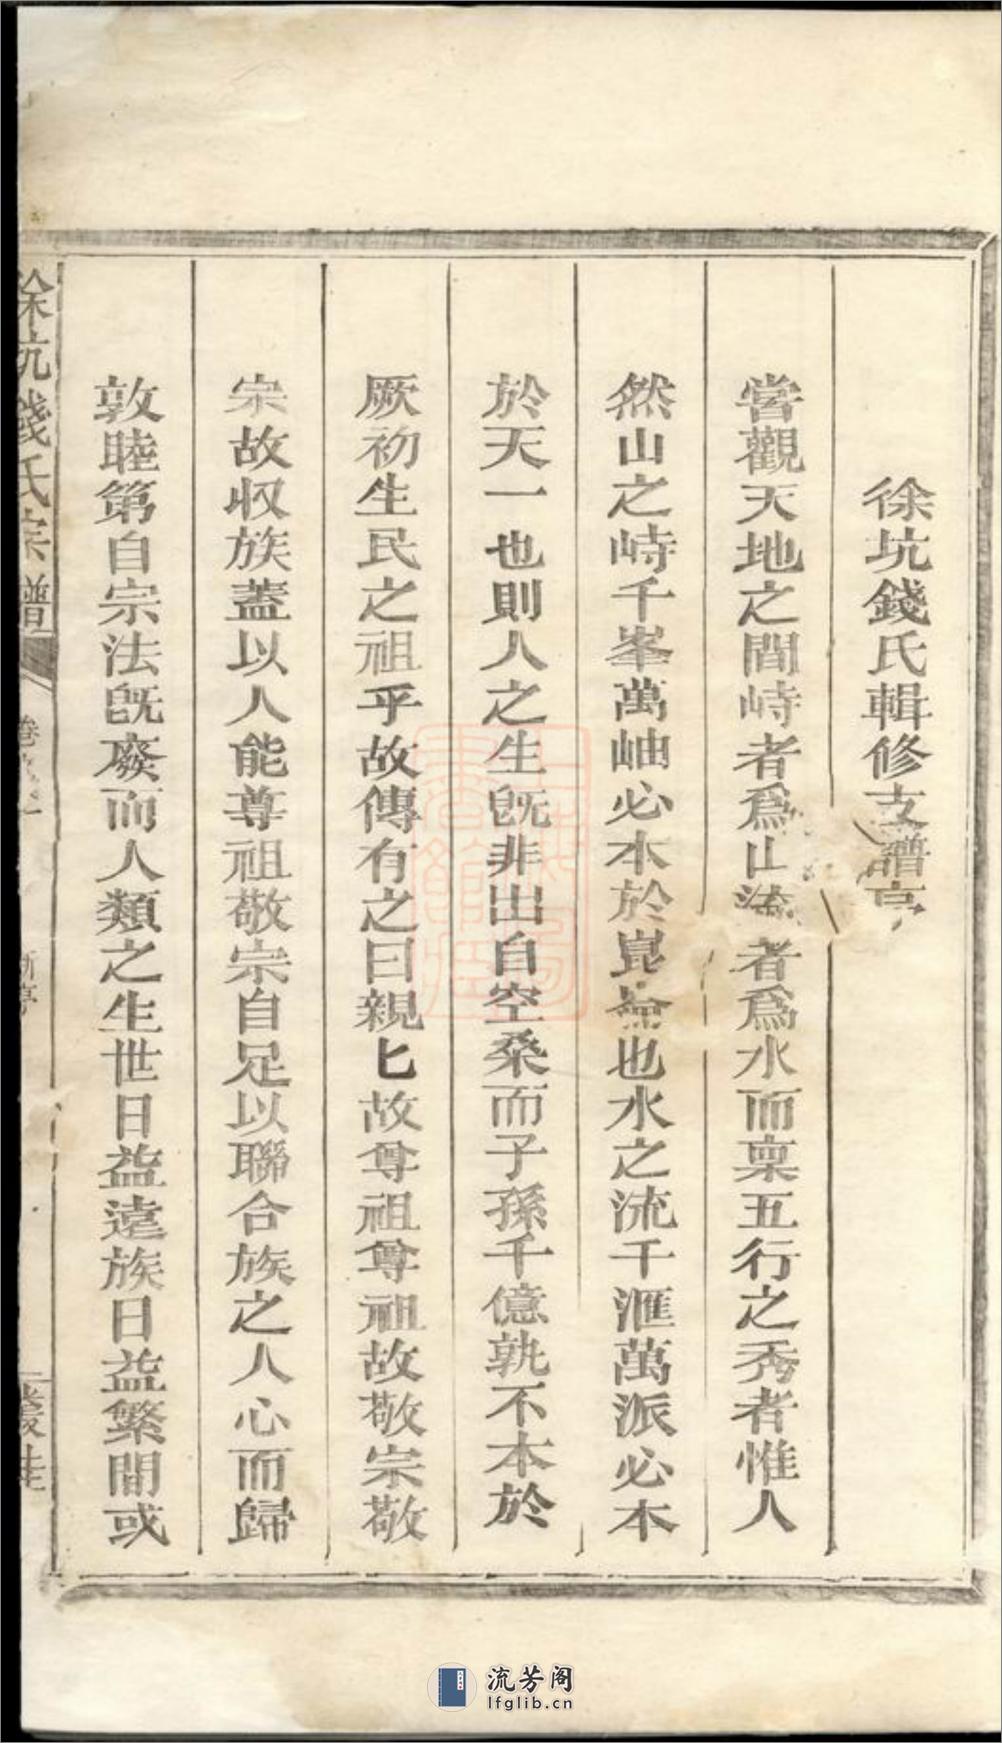 徐坑錢氏輯修支譜序
嘗觀天地之間峙者爲山流者爲水而稟五行之秀者惟人
然山之峙千峯萬岫必本於崑崙也水之流千滙萬派必本
於天一也則人之生旣非出自空桑而子孫千億孰不本於
厥初生民之祖乎故傳有之曰親匕故尊祖尊祖故敬宗敬
宗故収族蓋以人能尊祖敬宗自足以聯合族之人心而歸
敦睦第自宗法旣廢而人類之生世日益遠族日益繁間或
徐坑錢氏宗譜
卷之一
新序
流芳阁
lfglib.cn